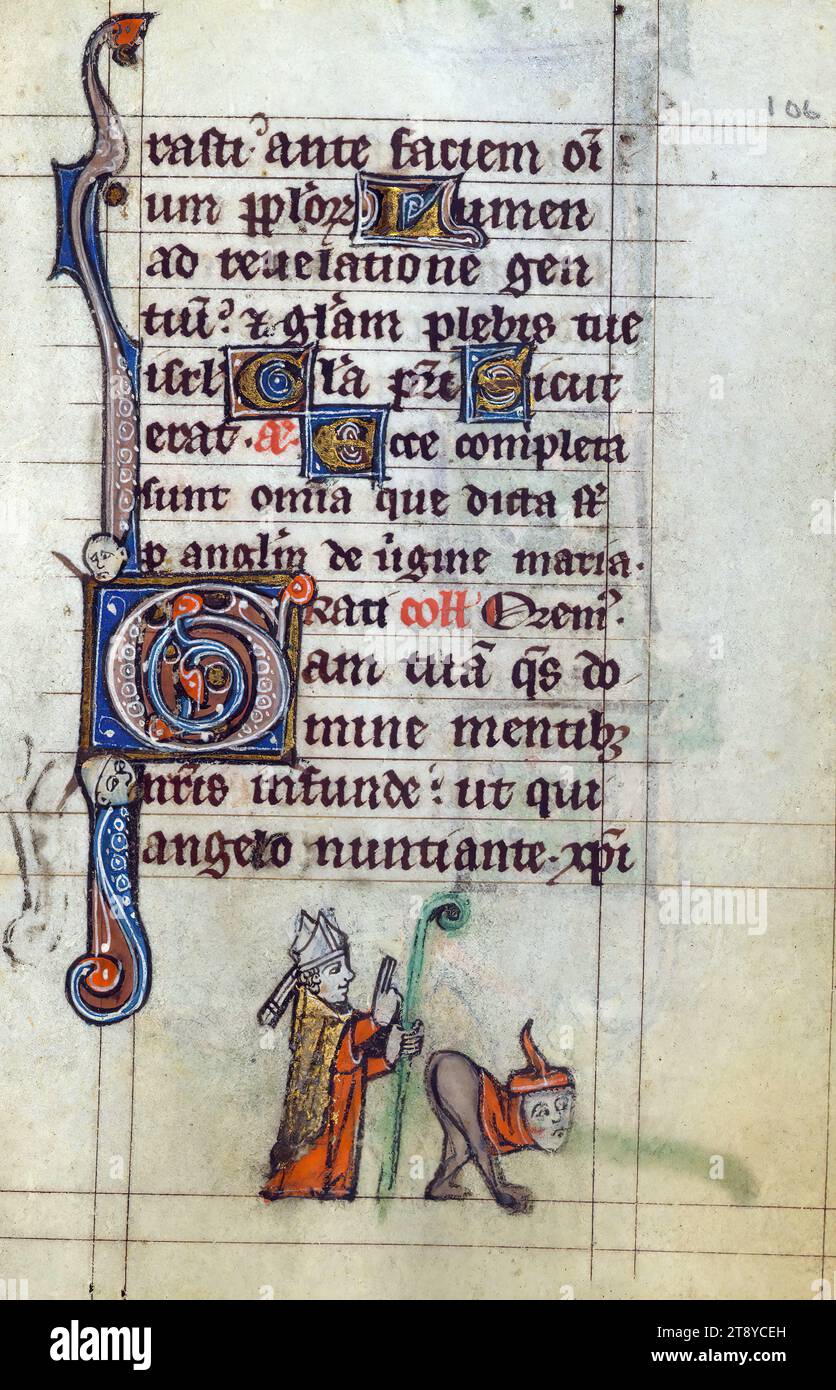 106
rasti. ante faciem oi
um pplorꝝ Lumen
ad revelatione gen
tiū. ⁊ glam plebis tue
isrl Gla pr̄e Sicut
erat. a. Ecce completa
sunt omia que dicta st
p anglm de v̓gine maria.
Grati coll Orem.
am tuā qs do
mine mentibꝫ
nr̄is infunde: ut qui
angelo nuntiante. xp̄i
alamy
Image ID: 2T8YCEH
www.alamy.com